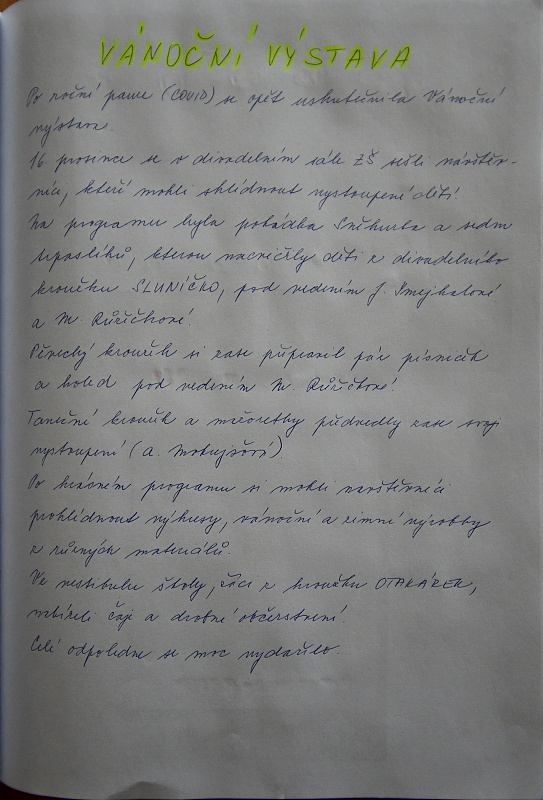 VÁNOČNÍ VÝSTAVA
Po roční pauze (COVID) se opět uskutečnila Vánoční
výstava.
16 prosince se v divadelním sále ZŠ sešli návštěv-
níci, kteří mohli shlédnout vystoupení dětí.
Na programu byla pohádka Sněhurka a sedm
trpaslíků, kterou nacvičily děti z divadelního
kroužku SLUNÍČKO, pod vedením J. Smejkalové
a M. Růžičkové.
Pěvecký kroužek si zase připravil pár písniček
a koled pod vedením M. Růžičkové.
Taneční kroužek a mažoretky předvedly zase svoji
vystoupení (A. Matujšoví).
Po krásném programu si mohli navštěvníci
prohlédnout výkresy, vánoční a zimní výrobky
z různých materiálů.
Ve vestibulu školy, žáci z kroužku OTAKÁREK,
nabízeli čaj a drobné občerstvení.
Celé odpoledne se moc vydařilo.